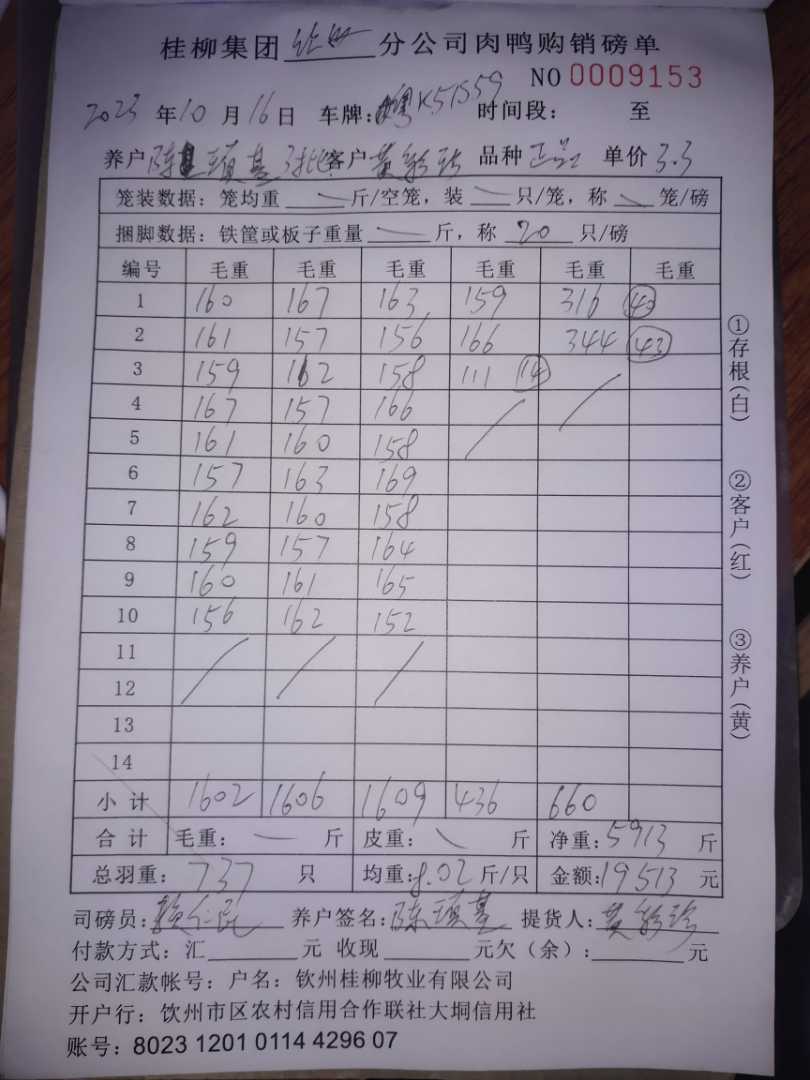 桂柳集团 钦州 分公司肉鸭购销磅单
NO 0009153
2023 年 10 月 16 日 车牌: K51S59 时间段: 至
养户 陈 基 3批 客户 黄 珍 品种 单价 3.3
笼装数据: 笼均重 斤/空笼, 装 只/笼, 称 笼/磅
捆脚数据: 铁筐或板子重量 斤, 称 20 只/磅
编号 毛重 毛重 毛重 毛重 毛重 毛重
1 160 167 163 159 316 40
2 161 157 156 166 344 43
3 159 162 158 111 14
4 167 157 166
5 161 160 158
6 157 163 169
7 162 160 158
8 159 157 164
9 160 161 165
10 156 162 152
11
12
13
14
小计 1602 1606 1609 436 660
合计 毛重: 斤 皮重: 斤 净重: 5913 斤
总羽重: 737 只 均重: 8.02 斤/只 金额: 19513 元
司磅员: 养户签名: 陈 基 提货人: 黄 珍
付款方式: 汇 元 收现 元欠(余): 元
公司汇款帐号: 户名: 钦州桂柳牧业有限公司
开户行: 饮州市区农村信用合作联社大垌信用社
账号: 8023 1201 0114 4296 07
①存根(白)
②客户(红)
③养户(黄)